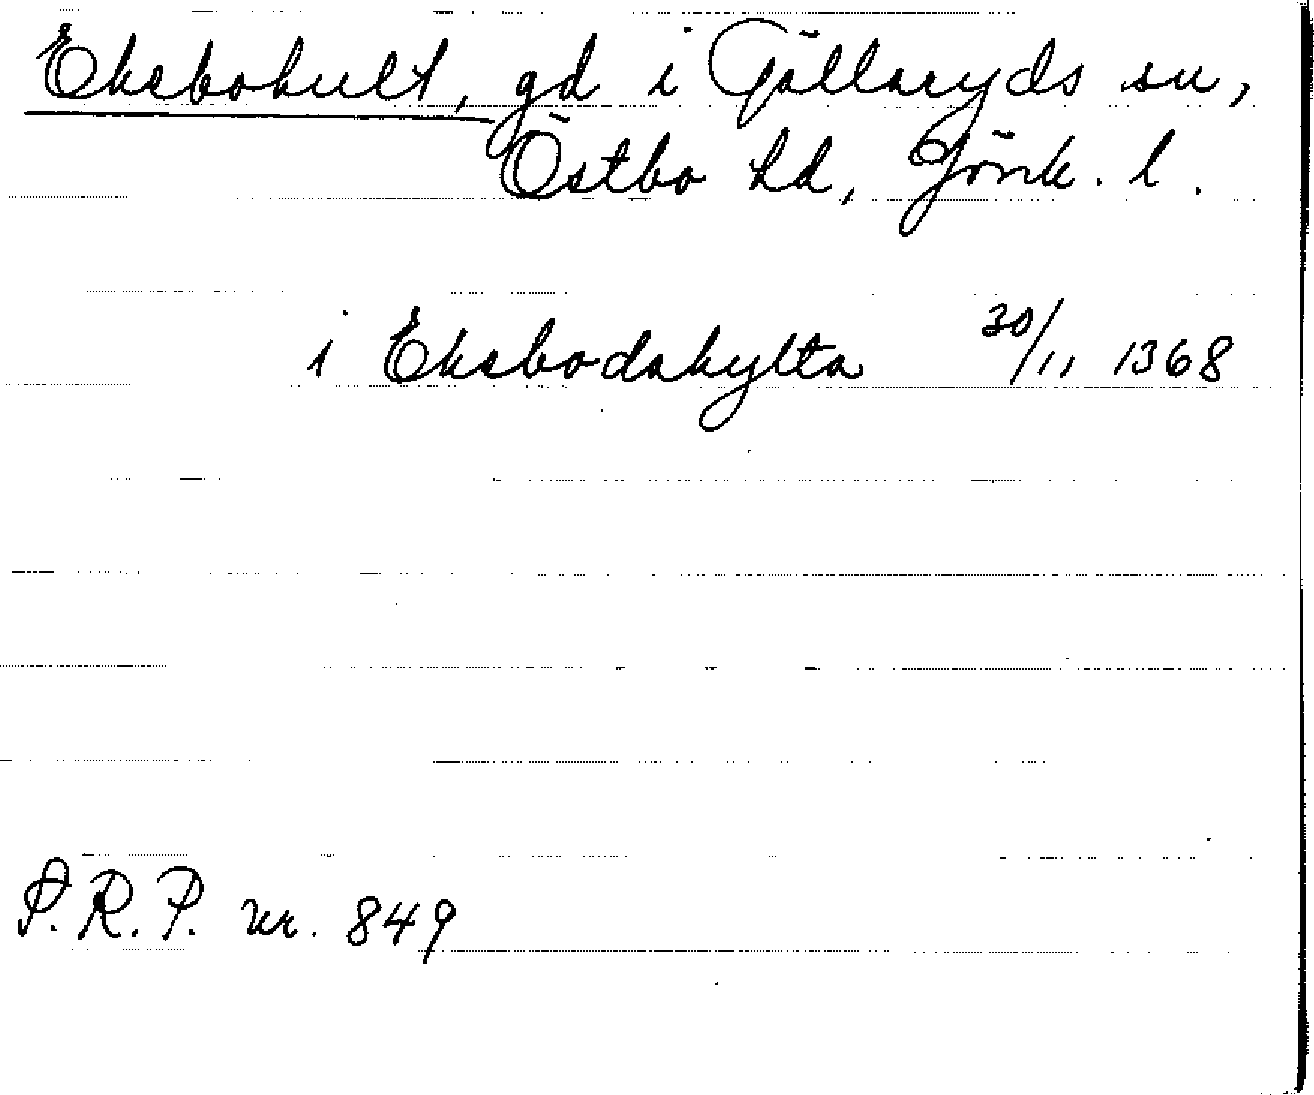 Eksbohult, gd i Gällaryds sn,
Östbo hd, Jönk. l.
i Eksbodahylta 30/11 1368
P.R.P. nr. 849